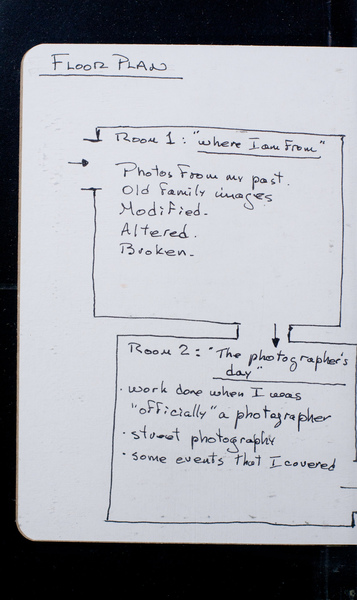 FLOOR PLAN
Room 1: "where I am from"
Photos from my past.
Old family images
Modified.
Altered.
Broken.
Room 2: "The photographer's
day"
· work done when I was
"officially" a photographer
· street photography
· some events that I covered